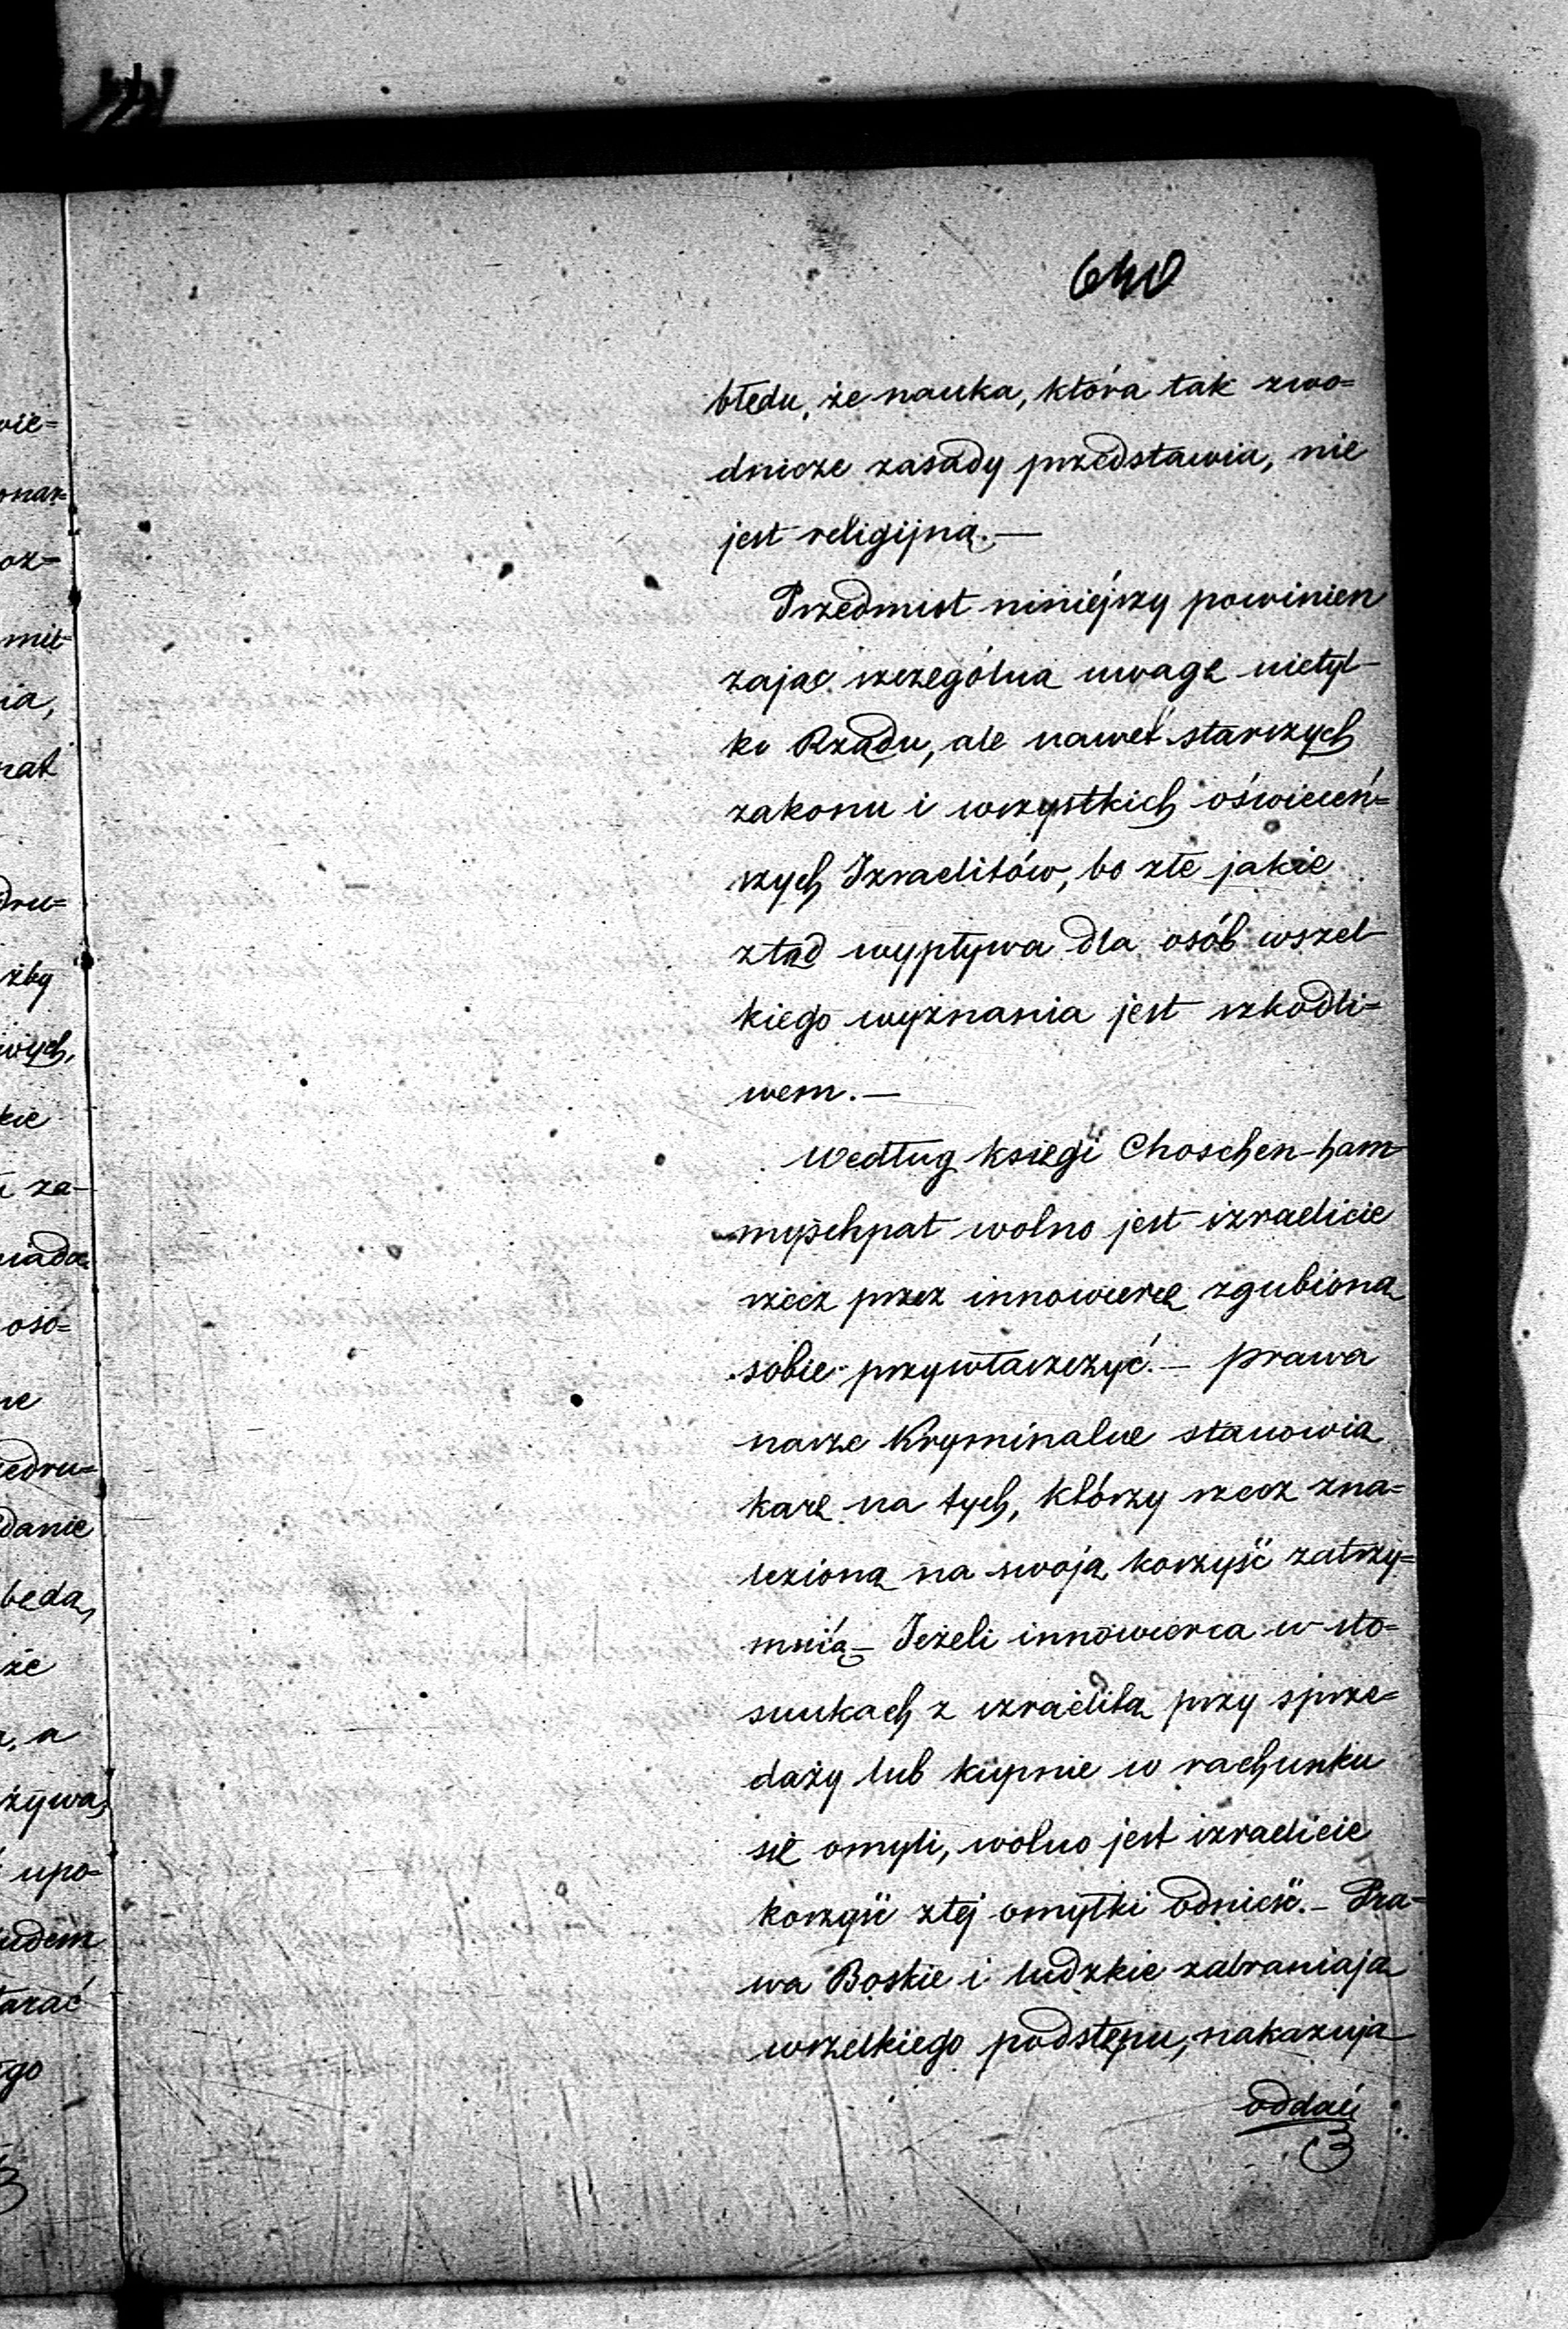 640
błędu, że nauka, która tak zwo=
dnicze zasady przedstawia, nie
jest religijną.—
Przedmiot niniéjszy powinien
zająć szczególną uwagę nietyl-
ko Rządu, ale nawet starszych
zakonu i wszystkich oświeceń=
szych Izraelitów, bo złe jakie
ztąd wypływa dla osób wszel-
kiego wyznania jest szkodli=
wem.—
Według księgi Choschen-ham-
myschpat wolno jest izraelicie
rzecz przez innowiercę zgubioną
sobie przywłaszczyć.— prawa
nasze Kryminalne stanowią
karę na tych, którzy rzecz zna=
lezioną na swoją korzyść zatrzy=
mnią— Jeżeli innowierca w sto=
sunkach z izraelitą przy sprze=
daży lub kupnie w rachunku
się omyli, wolno jest izraelicie
korzyść ztéj omyłki odnieść.— Pra=
wa Boskie i ludzkie zabraniają
wszelkiego podstępu, nakazują
oddać
wie=
oz=
ia,
dru=
żby
wych,
kie
oso=
iedru=
danie
będą,
że
, a
żywa,
upo=
udem
arać
go